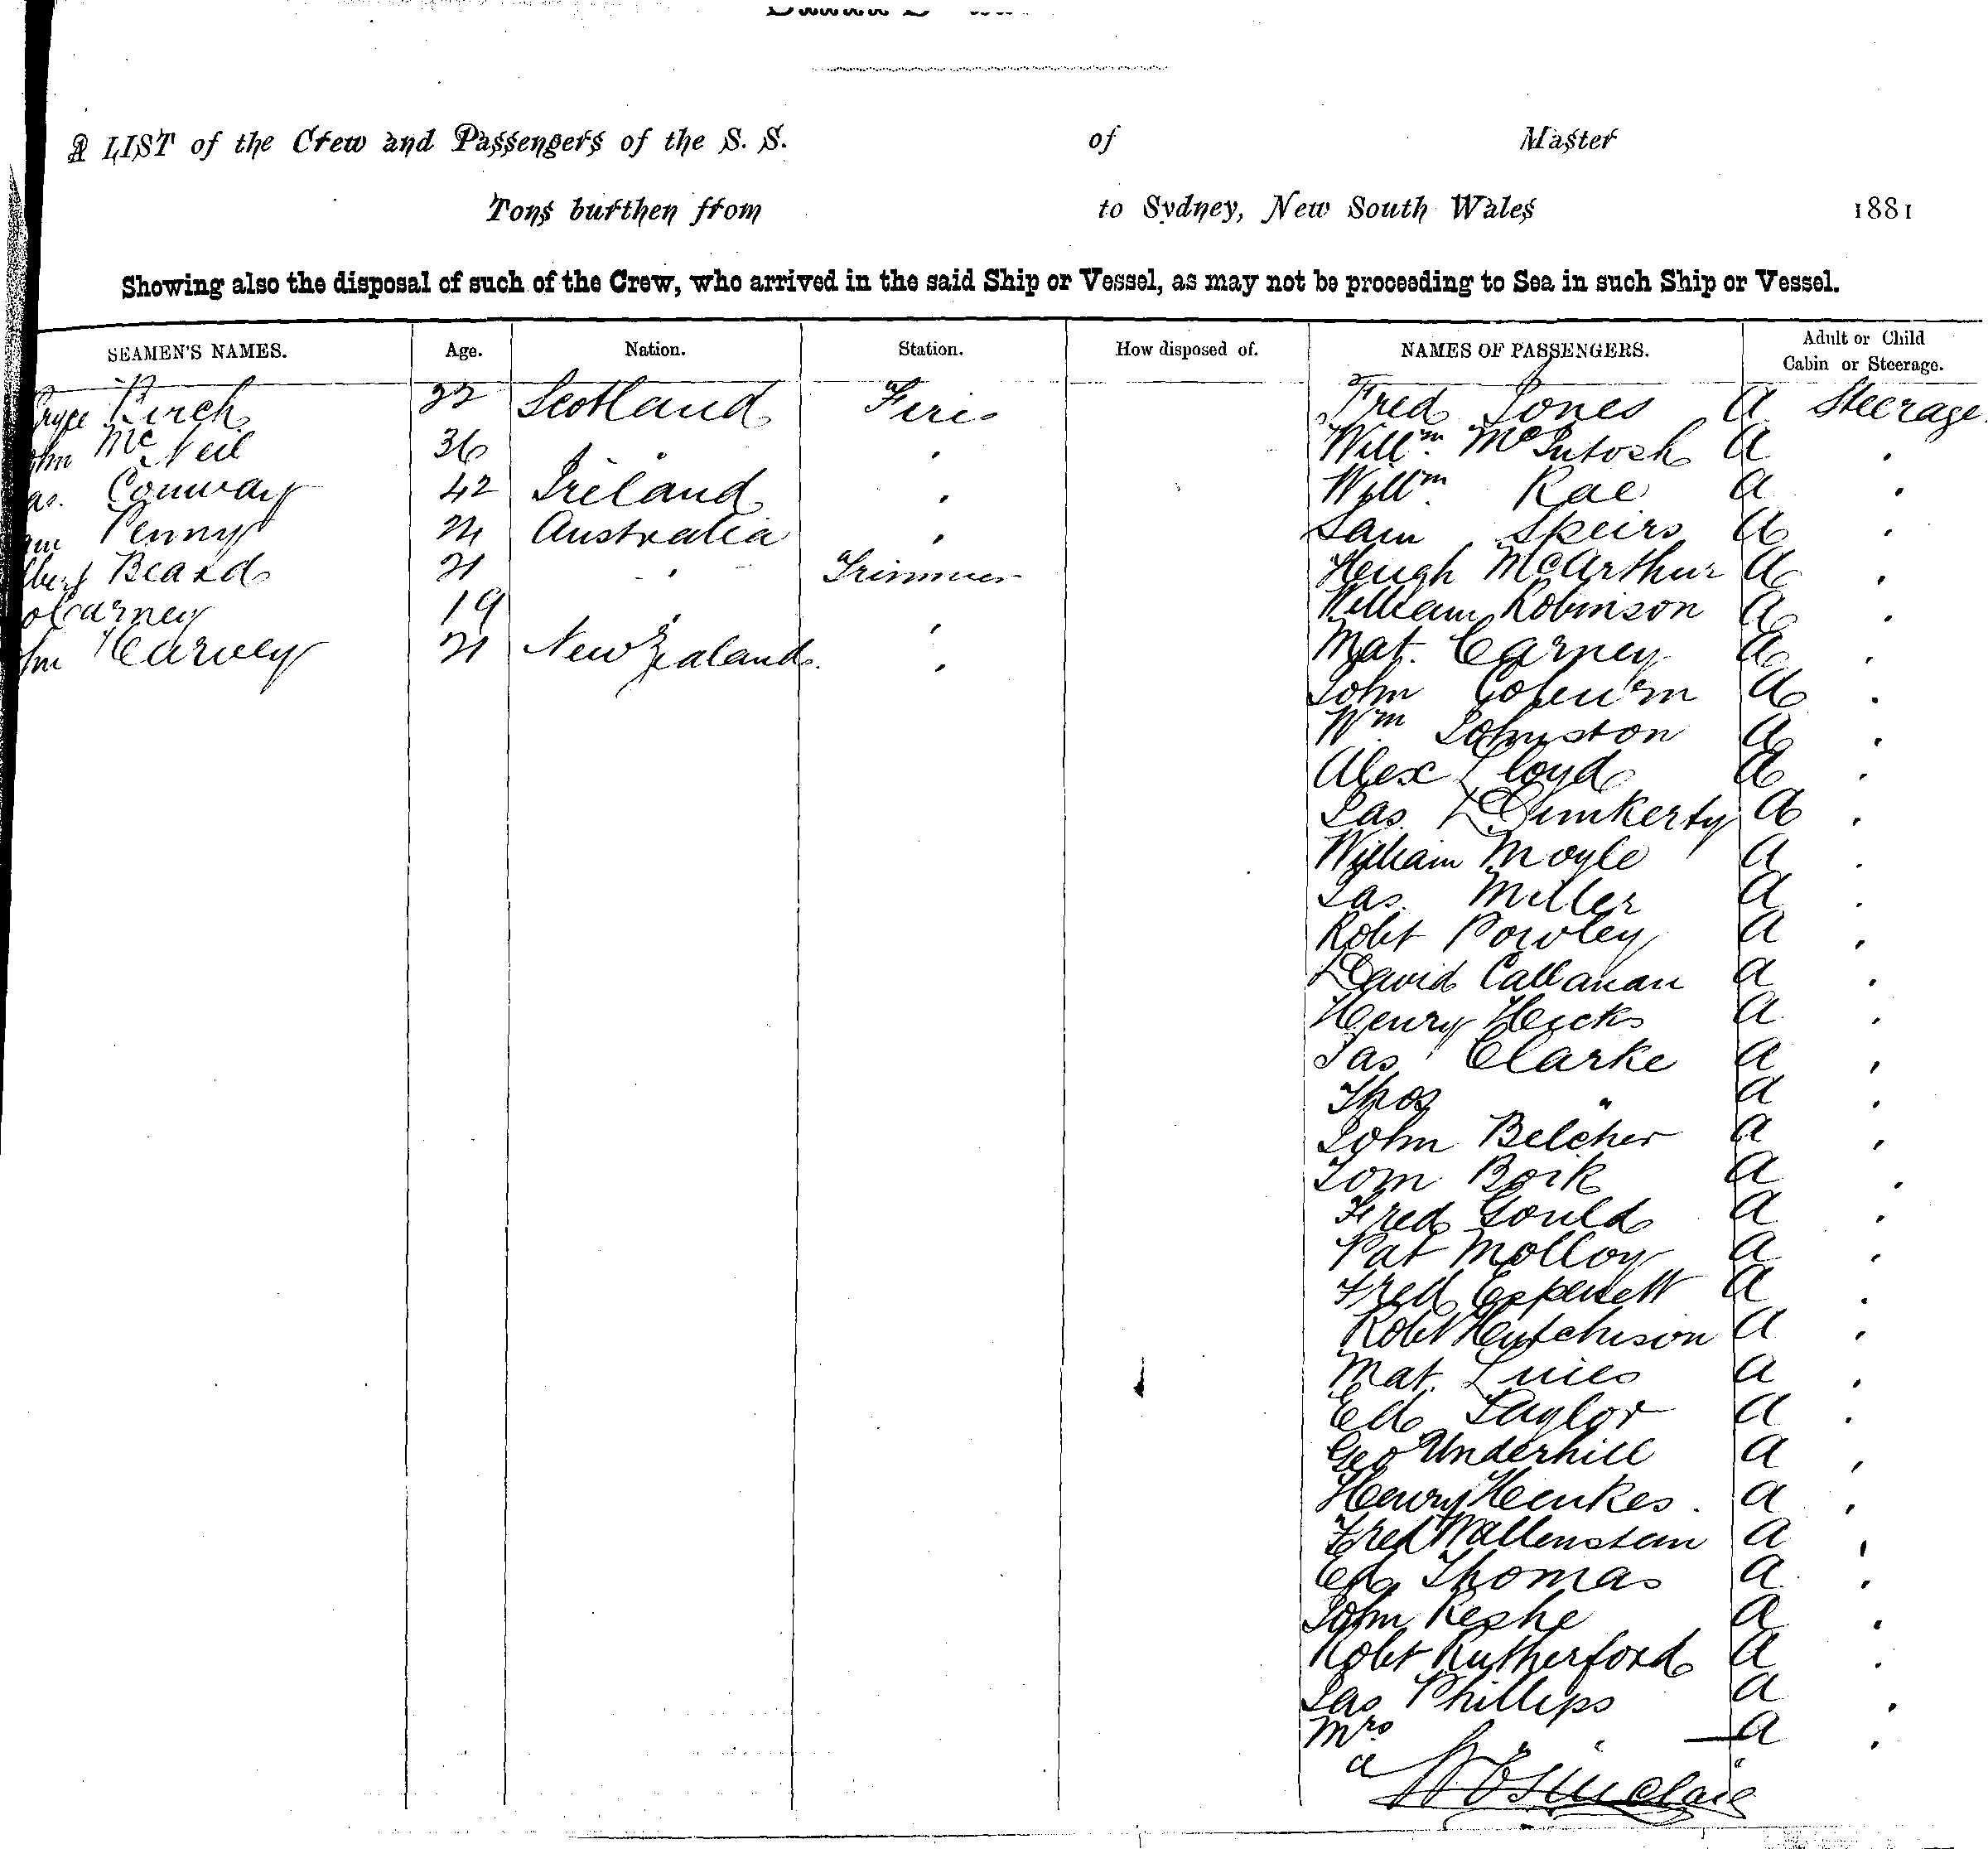 A LIST of the Crew and Passengers of the S. S. of Master
Tons burthen from to Sydney, New South Wales 1881
Showing also the disposal of such of the Crew, who arrived in the said Ship or Vessel, as may not be proceeding to Sea in such Ship or Vessel.
SEAMEN'S NAMES. Age. Nation. Station. How disposed of. NAMES OF PASSENGERS. Adult or Child
Cabin or Steerage.
Birch 22 Scotland Fire Fred Jones A Steerage
McNeil 36 " " Willm McIntosh A "
Conway 42 Ireland " Willm Rae A "
Penny 24 Australia " Sam Speirs A "
Beard 21 " Trimmer Hugh McArthur A "
Carney 19 " " William Robinson A "
Harvey 21 New Zealand " Mat. Carney A "
John A "
Wm Johnston A "
Alex Lloyd A "
Jas Dunkerty A "
William Moyle A "
Jas. Miller A "
Robt Powley A "
David Callanan A "
Henry Hicks A "
Jas Clarke A "
Thos " A "
John Belcher A "
Tom Boik A "
Fred Gould A "
Pat Molloy A "
Fred A "
Robt Hutchison A "
Mat. A "
Ed Taylor A "
Geo Underhill A "
Henry Henkes A "
Fred Wallenstein A "
Ed Thomas A "
John A "
Robt Rutherford A "
Jas Phillips A "
Mrs " A "
Sinclair